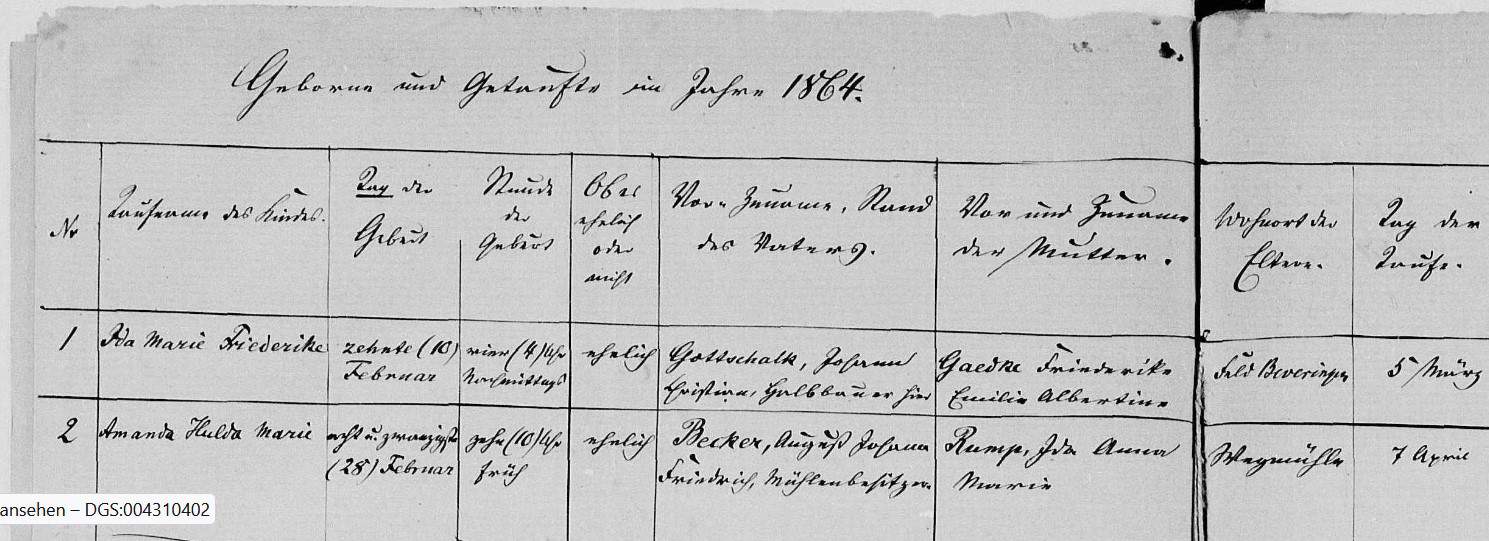 Geborne und Getaufte im Jahre 1864.
Nr
Taufname des Kindes.
Tag der
Geburt
Stunde
der
Geburt
Ob es
ehelich
oder
nicht
Vor- Zuname, Stand
des Vaters.
Vor und Zuname
der Mutter.
Wohnort der
Eltern.
Tag der
Taufe.
1
Ida Marie Friederike
zehnte (10)
Februar
vier (4) Uhr
Nachmittags
ehelich
Gottschalk, Johann
Christian, Halbbauer hier
Gaedke Friederike
Emilie Albertine
Feld Beveringen
5 März
2
Amanda Hulda Marie
acht u. zwanzigste
(28) Februar
zehn (10) Uhr
früh
ehelich
Becker, August Johann
Friedrich, Mühlenbesitzer.
Rump, Ida Anna
Marie
Wegmühle
7 April
ansehen – DGS:004310402